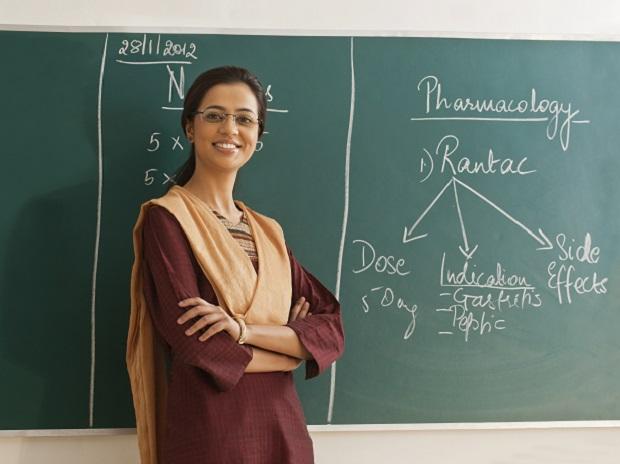 28/1/2012
N s
5 x 5
5 x
Pharmacology
1) Rantac
Dose
5 Day
Indication
- Gastritis
- Peptic
Side
Effects